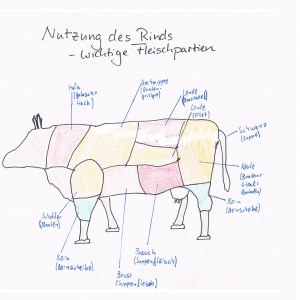 Nutzung des Rinds
- wichtige Fleischpartien
Hals
(Gulasch,
Hack)
Hochrippe
(Braten,
Lende
(Roastbeef)
Lende
(Filet)
Schwanz
(Suppe)
Keule
(Braten,
Steak,
Bein
(Beinscheibe)
Schulter
(Braten)
Bein
(Beinscheibe)
Brust
(Suppenfleisch)
Bauch
(Suppenfleisch)